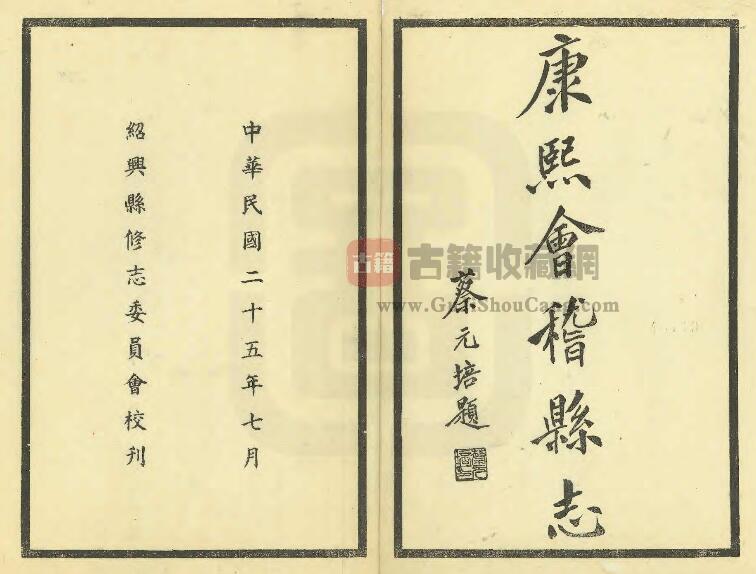 康熙會稽縣志
蔡元培題
中華民國二十五年七月
紹興縣修志委員會校刊
古籍
古籍收藏網
www.GuJiShouCang.com